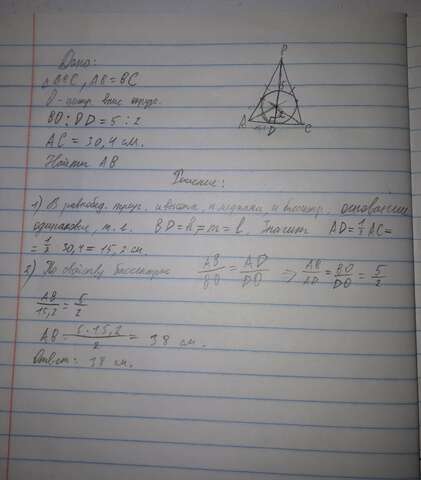 Дано:
△ABC, AB = BC
O - центр впис. окруж.
BO : OD = 5 : 2
AC = 30,4 см.
Найти AB
Решение:
1) В равнобед. треуг. и высота, и медиана, и биссектр. основании
одинаковы, т. е. BD = h = m = l. Значит AD = 1/2 AC =
= 1/2 · 30,4 = 15,2 см.
2) По свойству биссектрис AB/BO = AD/DO ⇒ AB/AD = BO/DO = 5/2
AB/15,2 = 5/2
AB = 5 · 15,2 / 2 = 38 см.
Ответ: 38 см.
B
5
2
A
D
C